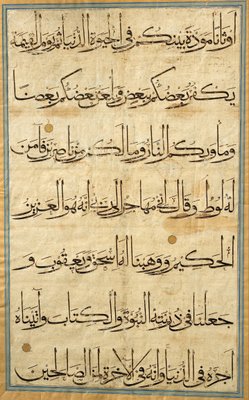 أوثانا مودة بينكم في الحيوة الدنيا ثم يوم القيمة
يكفر بعضكم ببعض ويلعن بعضكم بعضا
ومأويكم النار وما لكم من ناصرين فآمن
له لوط وقال إني مهاجر إلى ربي إنه هو العزيز
الحكيم ووهبنا له إسحق ويعقوب و
جعلنا في ذريته النبوة والكتاب وآتيناه
أجره في الدنيا وإنه في الآخرة لمن الصالحين